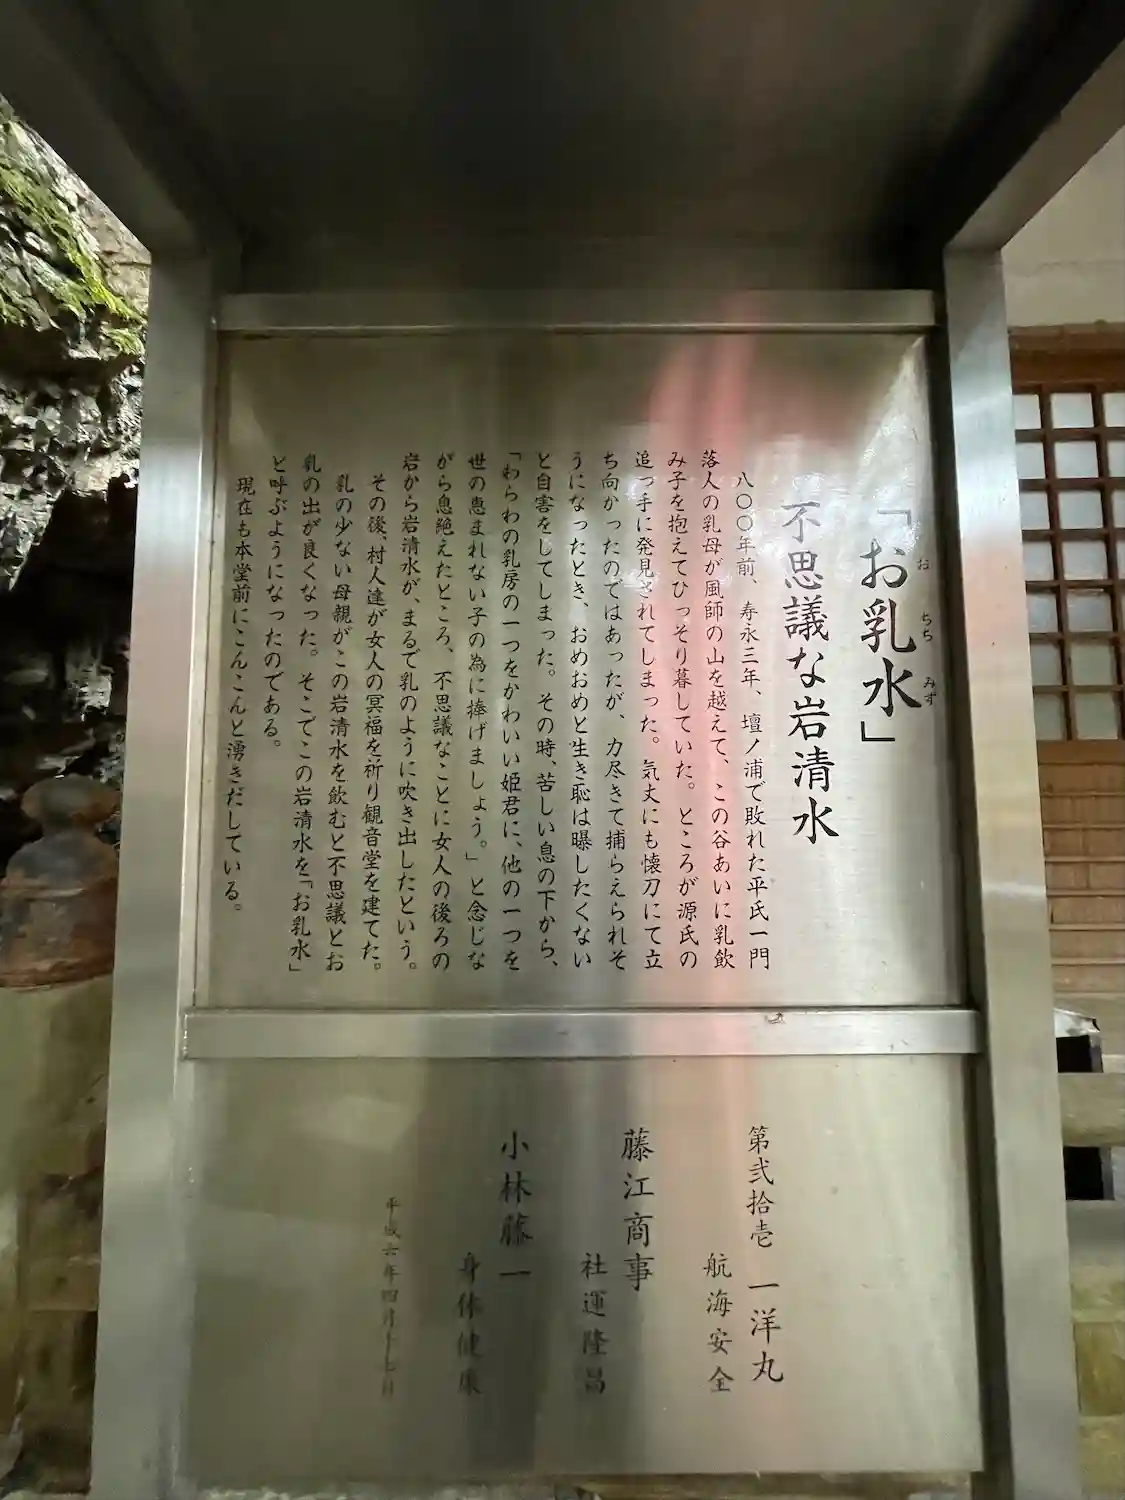 「お乳水」
お ちち みず
不思議な岩清水
八〇〇年前、寿永三年、壇ノ浦で敗れた平氏一門
落人の乳母が風師の山を越えて、この谷あいに乳飲
み子を抱えてひっそり暮していた。ところが源氏の
追っ手に発見されてしまった。気丈にも懐刀にて立
ち向かったのではあったが、力尽きて捕らえられそ
うになったとき、おめおめと生き恥は曝したくない
と自害をしてしまった。その時、苦しい息の下から、
「わらわの乳房の一つをかわいい姫君に、他の一つを
世の恵まれない子の為に捧げましょう。」と念じな
がら息絶えたところ、不思議なことに女人の後ろの
岩から岩清水が、まるで乳のように吹き出したという。
その後、村人達が女人の冥福を祈り観音堂を建てた。
乳の少ない母親がこの岩清水を飲むと不思議とお
乳の出が良くなった。そこでこの岩清水を「お乳水」
と呼ぶようになったのである。
現在も本堂前にこんこんと湧きだしている。
第弐拾壱 一洋丸
航海安全
藤江商事
社運隆昌
小林藤一
身体健康
平成六年四月十七日